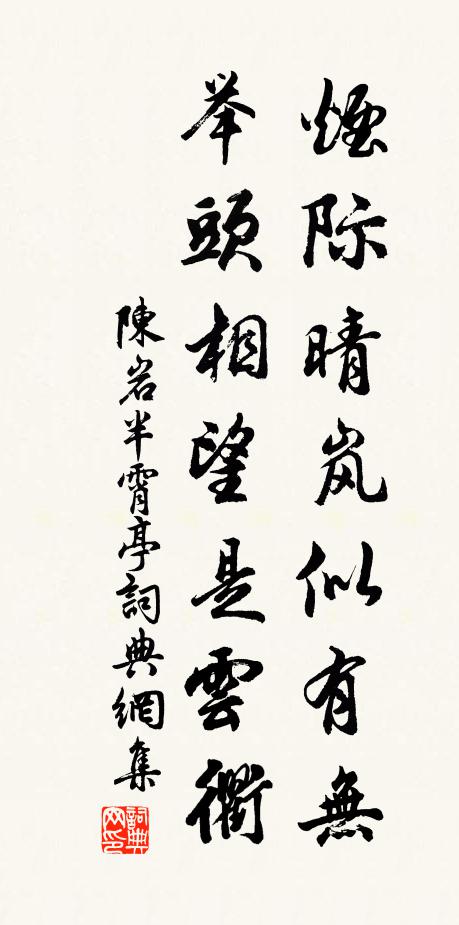 煙际晴岚似有無
举頭相望是雲衢
陳岩半霄亭詞典網集
詞典网印